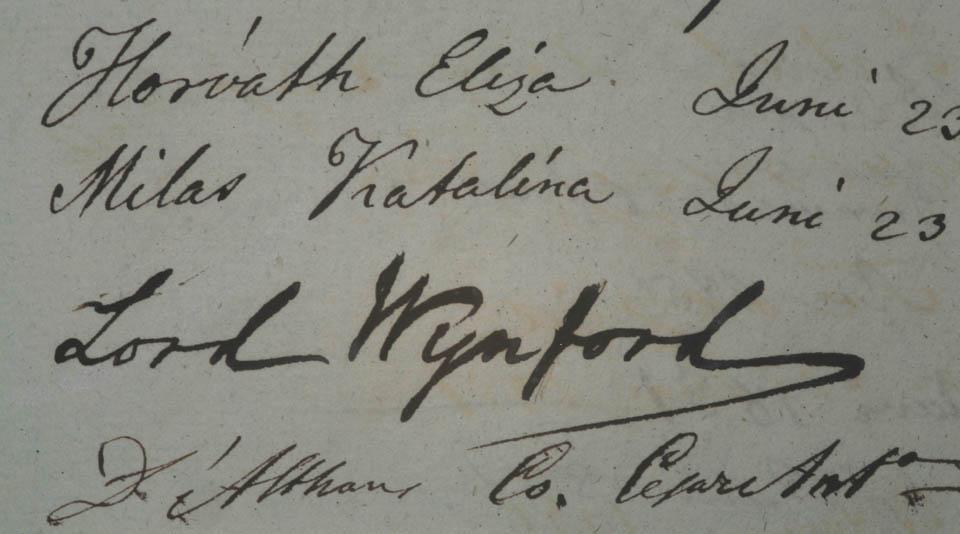 Horváth Eliza Juni 23
Milas Katalina Juni 23
Lord Wynford
D'Althann Co. Cesare Ant.º